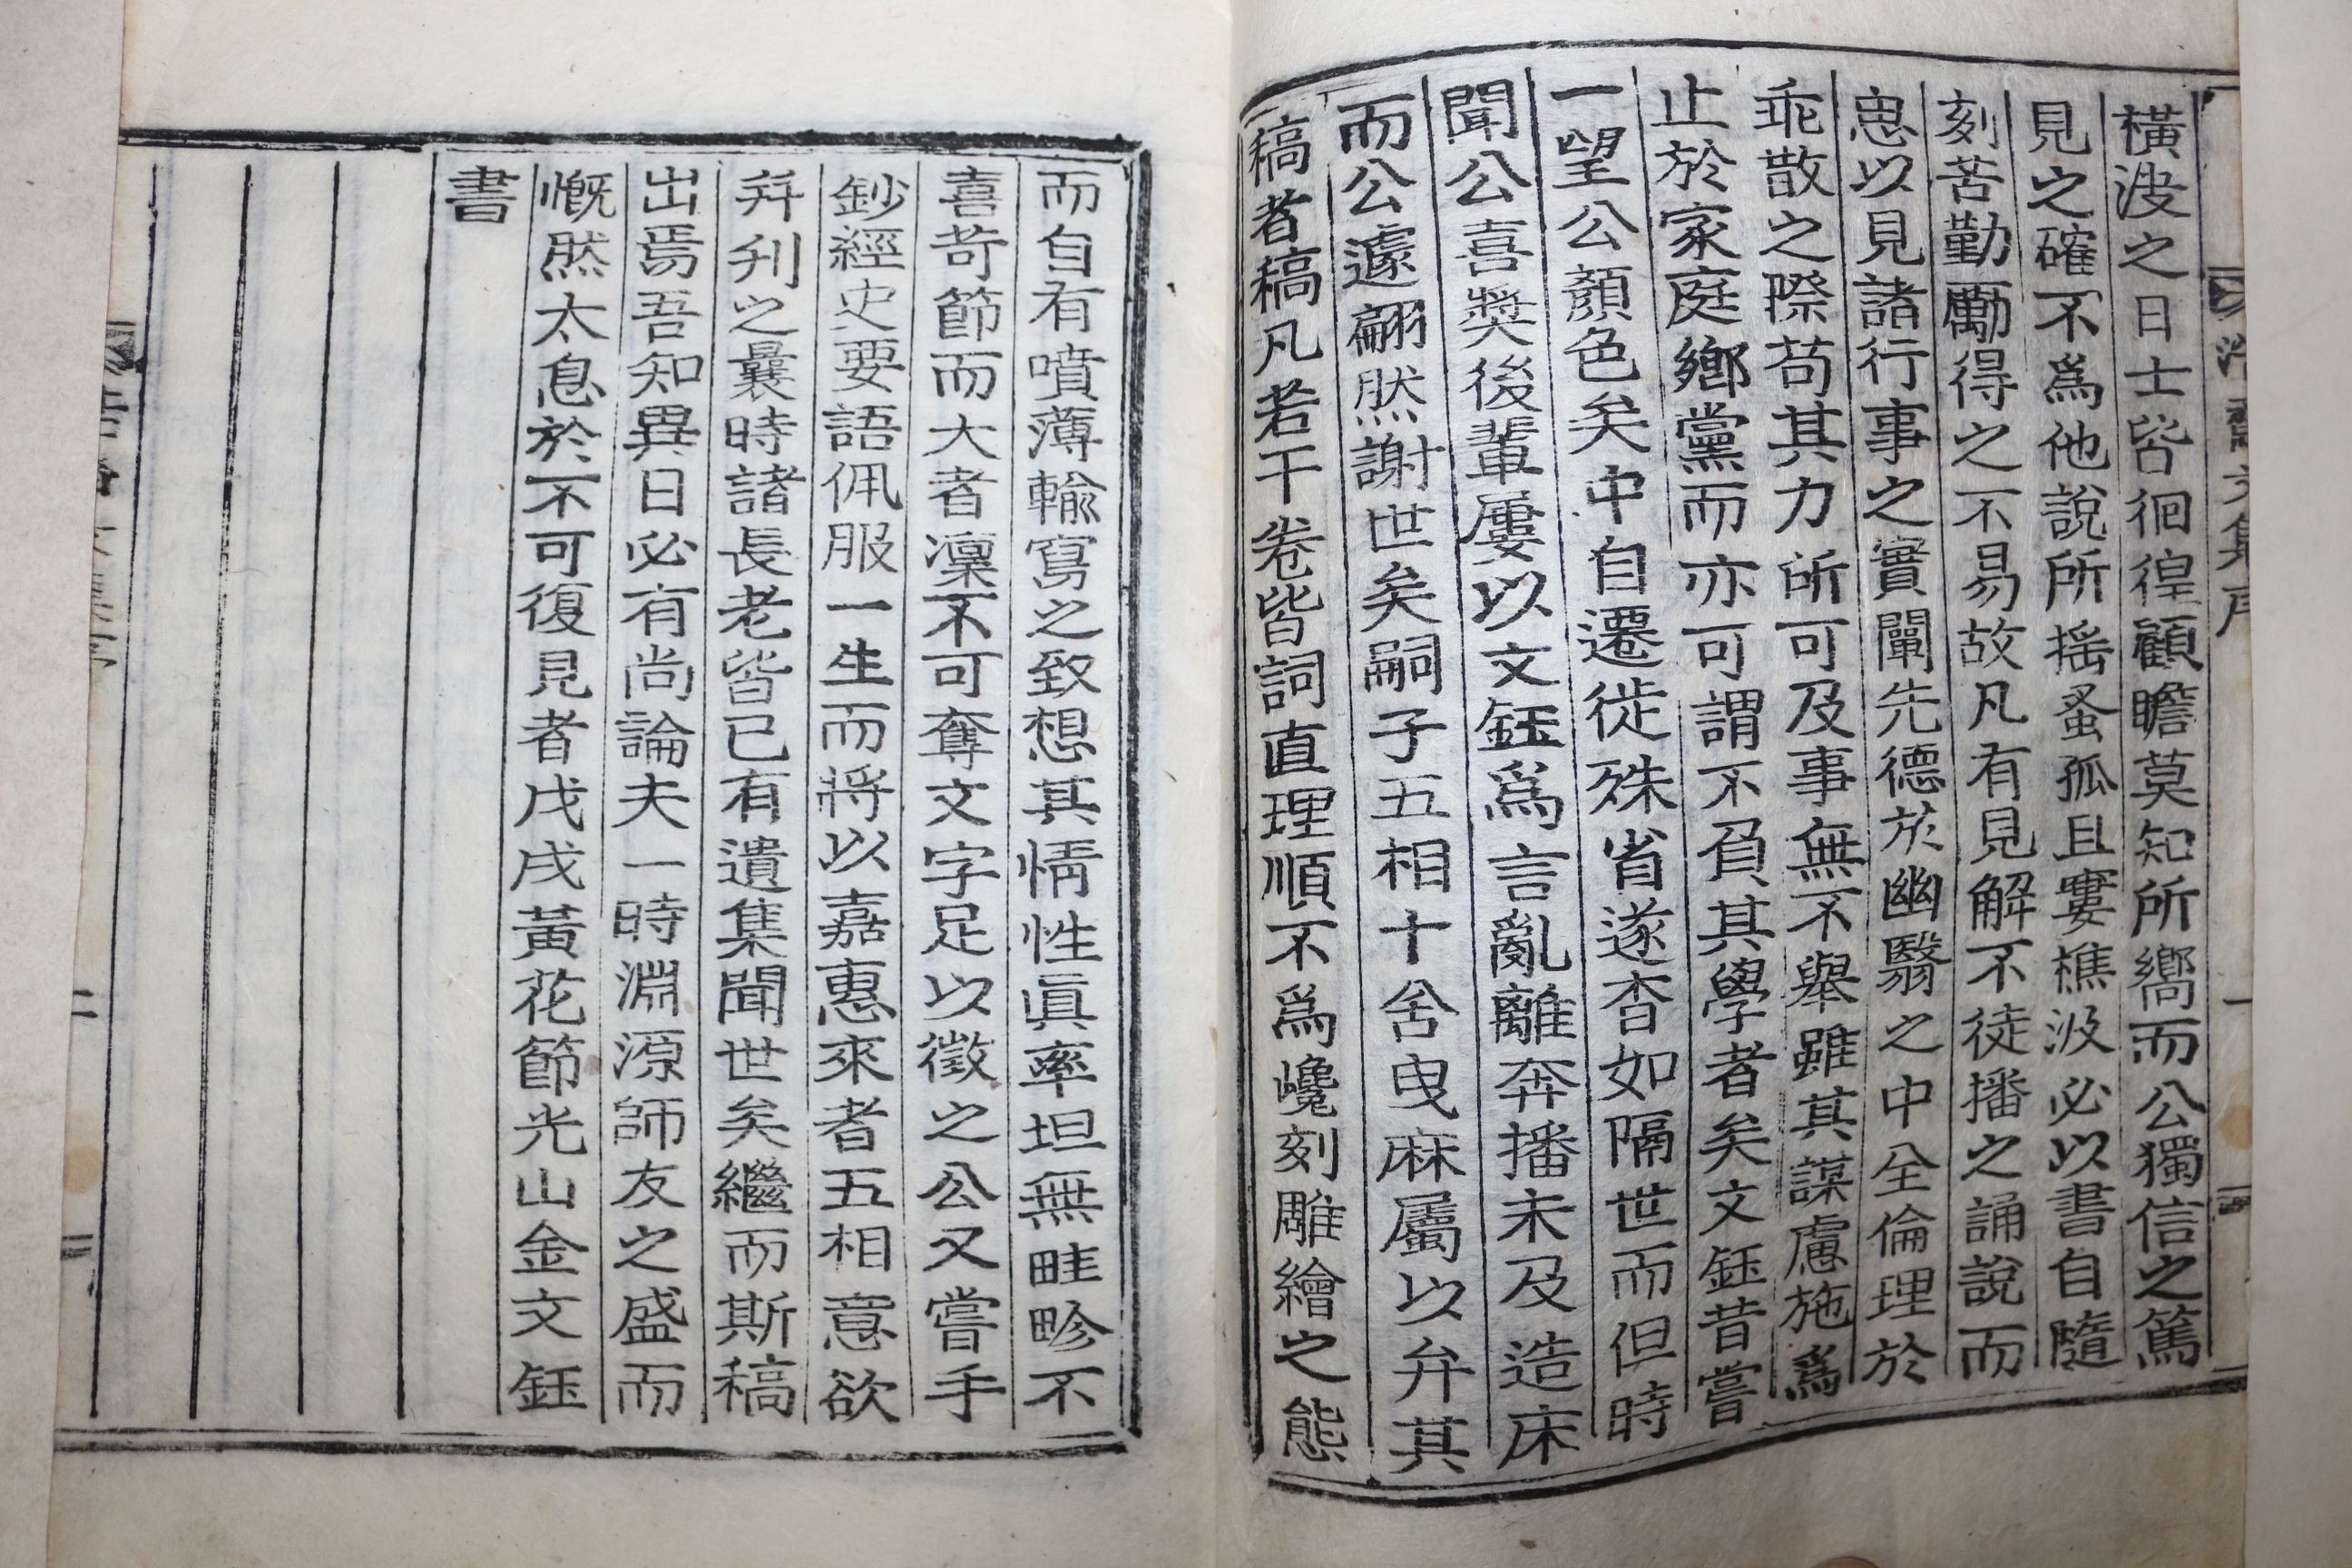 橫浸之日士皆徊徨顧瞻莫知所嚮而公獨信之篤
見之確不爲他說所搖蚤孤且窶樵汲必以書自隨
刻苦勤勵得之不易故凡有見解不徒播之誦說而
思以見諸行事之實闡先德於幽翳之中全倫理於
乖散之際苟其力所可及事無不舉雖其謀慮施爲
止於家庭鄕黨而亦可謂不負其學者矣文鈺昔嘗
一望公顏色矣中自遷徙殊省遂杳如隔世而但時
聞公喜奬後輩屢以文鈺爲言亂離奔播未及造床
而公遽翩然謝世矣嗣子五相十舍曳麻屬以弁其
稿者稿凡若干卷皆詞直理順不爲巉刻雕繪之態
而自有噴薄輸寫之致想其情性眞率坦無畦畛不
喜苛節而大者凜不可奪文字足以徵之公又嘗手
鈔經史要語佩服一生而將以嘉惠來者五相意欲
幷刋之曩時諸長老皆已有遺集聞世矣繼而斯稿
出焉吾知異日必有尚論夫一時淵源師友之盛而
慨然太息於不可復見者戊戌黃花節光山金文鈺
書
文集序
一
二